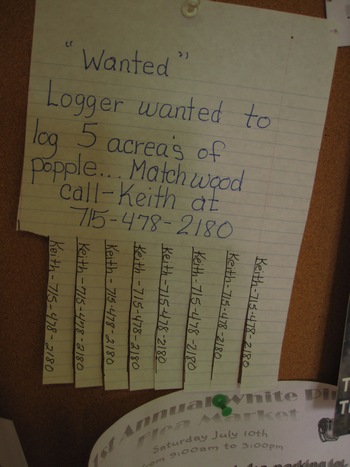 "Wanted"
Logger wanted to
log 5 acrea's of
popple... Matchwood
call-Keith at
715-478-2180
Keith-715-478-2180
Keith-715-478-2180
Keith-715-478-2180
Keith-715-478-2180
Keith-715-478-2180
Keith-715-478-2180
Keith-715-478-2180
Keith-715-478-2180
1st Annual White
Flea Market
Saturday July 10th
from 9:00am to 3:00pm